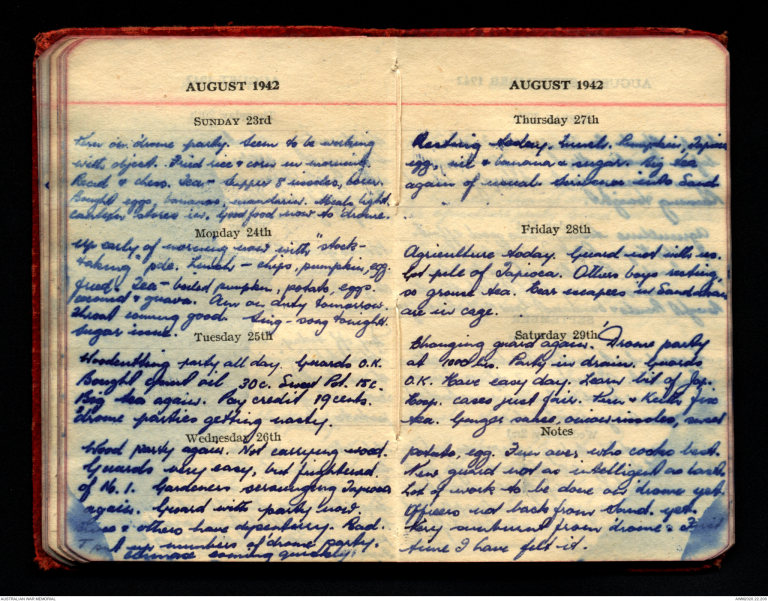 AUGUST 1942
SUNDAY 23rd
on 'drome party. Seem to be working
with object. Fried rice & corn in morning.
Read & chess. Tea - Supper 8 issoles,
Bought eggs, bananas, mandarin. Meals light.
canteen stores in. Good food now to 'drome.
Monday 24th
Up early of morning now with "stock-
taking" pde. Lunch - chips, pumpkin, egg.
fried. Tea - boiled pumpkin, potato, eggs.
& guava. Am on duty tomorrow.
throat coming good. Sing-song tonight.
Sugar issue.
Tuesday 25th
Woodcutting party all day. Guards O.K.
Bought oil 30c. Sweet Pot. 15c.
Big tea again. Pay credit 19 cents.
'drome parties getting nasty.
Wednesday 26th
Wood party again. Not carrying wood.
Guards very easy, but frightened
of No. 1. Gardeners scrounging Tapioca
again. Guard with party now.
& others have dysentery. Rad.
up numbers of 'drome party.
coming quickly.
AUGUST 1942
Thursday 27th
Resting today. Lunch. Pumpkin, Tapioca
egg, & banana & sugar. Big tea
again of usual. into Sand
Friday 28th
Agriculture today. Guard not with us.
Got pile of Tapioca. Other boys resting,
so ground tea. Hear escapees in Sandakan
are in cage.
Saturday 29th
Changing guard again. Drome party
at 1000 hrs. Party in drain. Guards
O.K. Have easy day. Learn bit of Jap.
Hosp. cases just fair. & Keith, fix
tea. Ginger sauce, onion rissoles, sweet
Notes
potato, egg. over, who cooks best.
New guard not as intelligent as last.
Lot of work to be done on 'drome yet.
Officers not back from Sand. yet.
Very sunburnt from 'drome & First
time I have felt it.
AUSTRALIAN WAR MEMORIAL